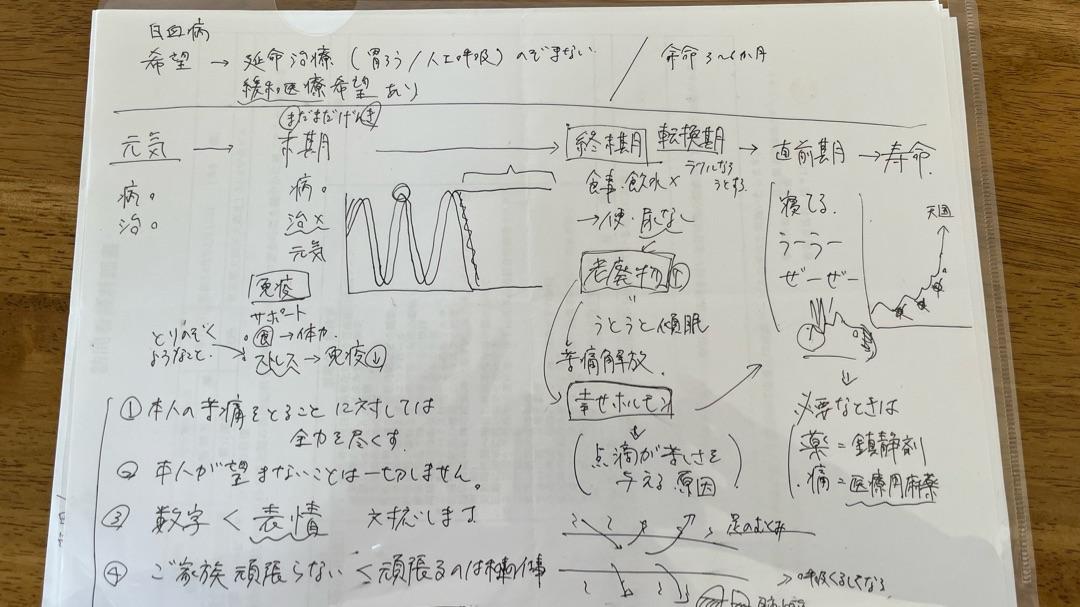 白血病
希望 → 延命治療(胃ろう/人工呼吸)のぞまない / 余命3〜6か月
緩和医療希望あり
まだまだげんき
元気 → 末期 → 終末期 転換期 → 直前期 → 寿命
ラクになる
うとうとする
病。
治。
病。
治×
元気
免疫
サポート
食→体力
ストレス→免疫↓
とりのぞく
ようなこと
食事・飲水×
→便・尿なし
老廃物↑
うとうと傾眠
苦痛解放
幸せホルモン
(点滴が苦しさを
与える原因)
寝てる
うーうー
ぜーぜー
天国
必要なときは
薬=鎮静剤
痛=医療用麻薬
① 本人の苦痛をとることに対しては
全力を尽くす。
② 本人が望まないことは一切しません。
③ 数字<表情 対応します
④ ご家族頑張らない<頑張るのは
足のむくみ
呼吸くるしくなる